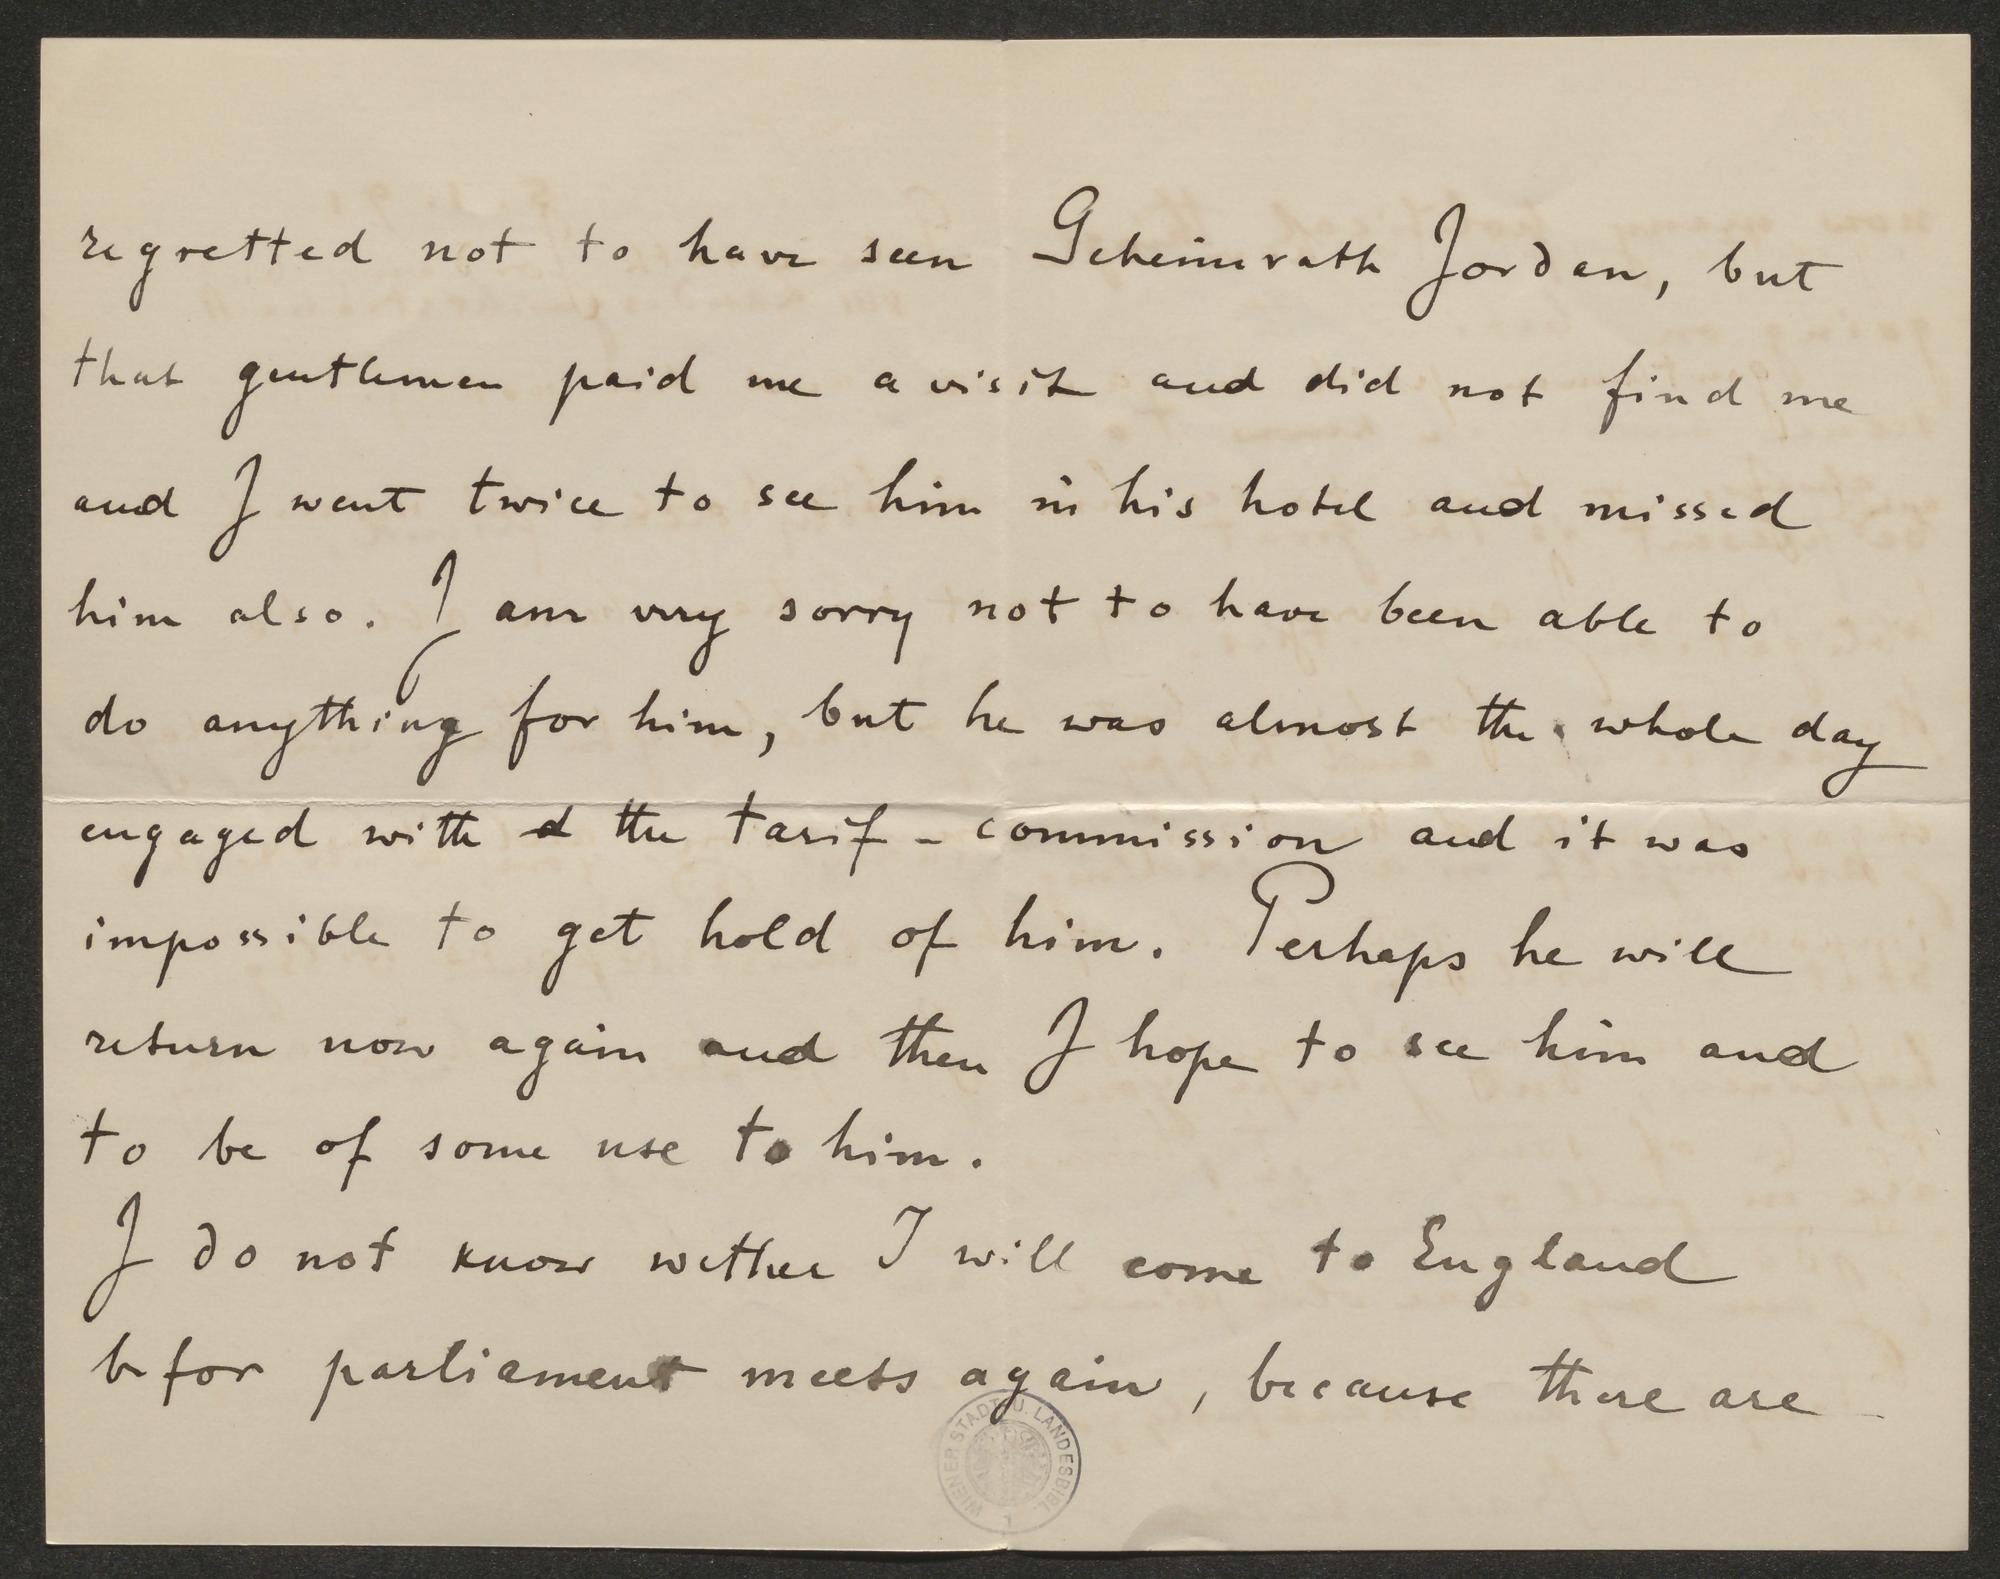 regretted not to have seen Geheimrath Jordan, but
that gentlemen paid me a visit and did not find me
and I went twice to see him in his hotel and missed
him also. I am very sorry not to have been able to
do anything for him, but he was almost the whole day
engaged with the tarif-commission and it was
impossible to get hold of him. Perhaps he will
return now again and then I hope to see him and
to be of some use to him.
I do not know wether I will come to England
befor parliament meets again, because there are
WIENER STADT U. LANDESBIBL.